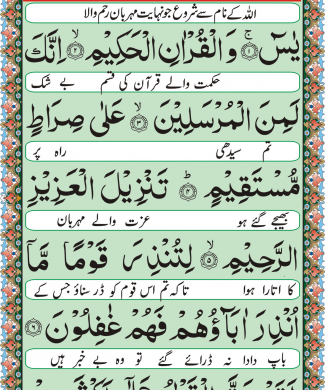 اللہ کے نام سے شروع جو نہایت مہربان رحم والا
يٰسٓ ۚ﴿۱﴾ وَ الْقُرْاٰنِ الْحَكِيْمِ ۙ﴿۲﴾ اِنَّكَ
حکمت والے قرآن کی قسم بے شک
لَمِنَ الْمُرْسَلِيْنَ ۙ﴿۳﴾ عَلٰى صِرَاطٍ
تم سیدھی راہ پر
مُّسْتَقِيْمٍ ؕ﴿۴﴾ تَنْزِيْلَ الْعَزِيْزِ
بھیجے گئے ہو عزت والے مہربان
الرَّحِيْمِ ۙ﴿۵﴾ لِتُنْذِرَ قَوْمًا مَّاۤ
کا اتارا ہوا تاکہ تم اس قوم کو ڈر سناؤ جس کے
اُنْذِرَ اٰبَآؤُهُمْ فَهُمْ غٰفِلُوْنَ ﴿۶﴾
باپ دادا نہ ڈرائے گئے تو وہ بے خبر ہیں